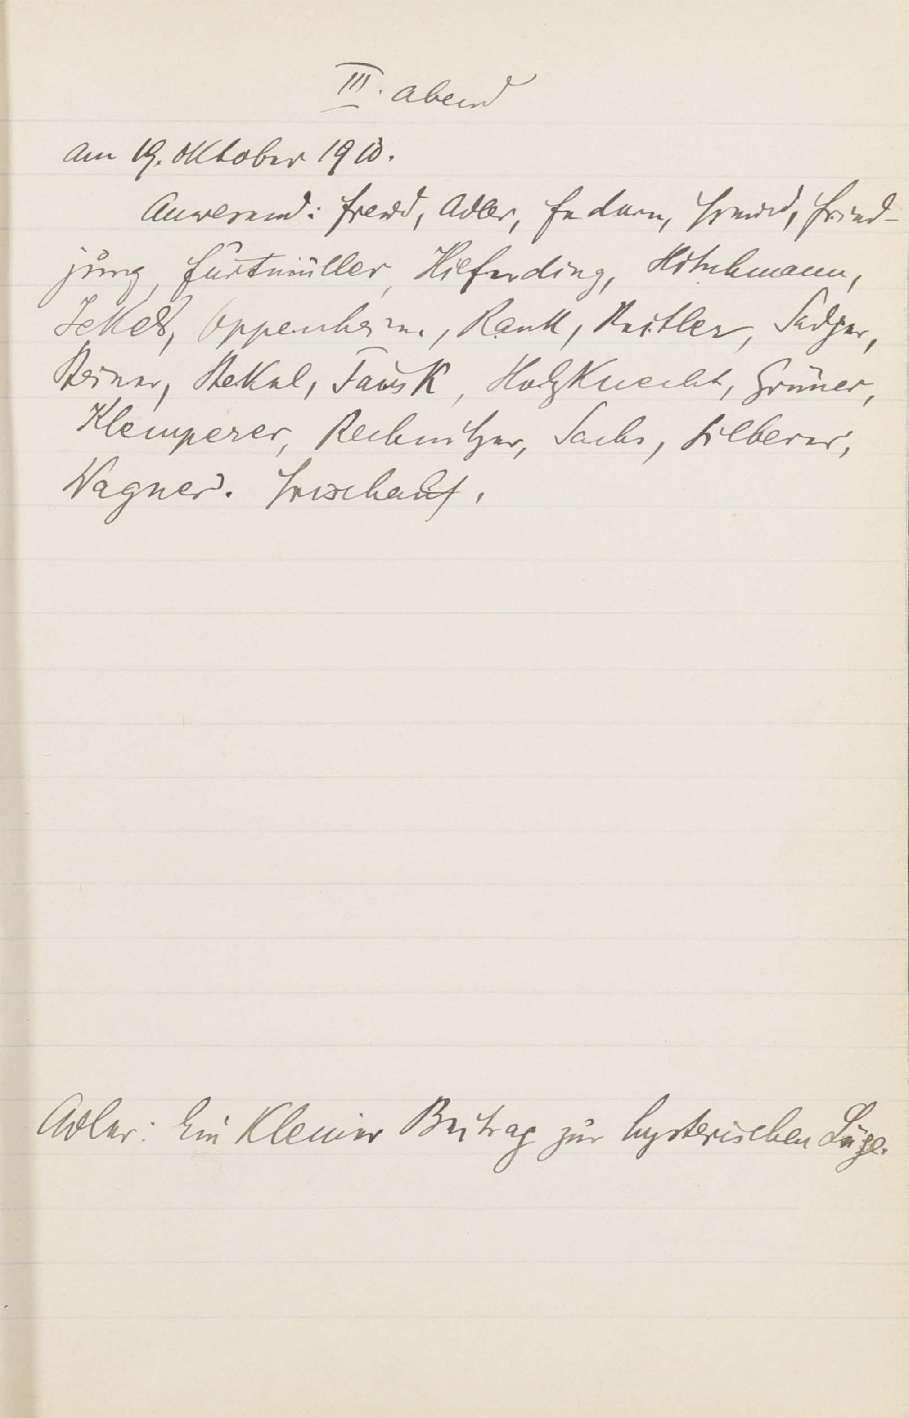 III. Abend
am 19. Oktober 1910.
Anwesend: Freud, Adler, Federn, Freund, Fried-
jung, Furtmüller, Hilferding, Hitschmann,
Jekels, Oppenheim, Rank, Reitler, Sadger,
Steiner, Stekel, Tausk, Holzknecht, Grüner,
Klemperer, Rechnitzer, Sachs, Silberer,
Wagner. Frischauf.
Adler: Ein kleiner Beitrag zur hysterischen Lüge.